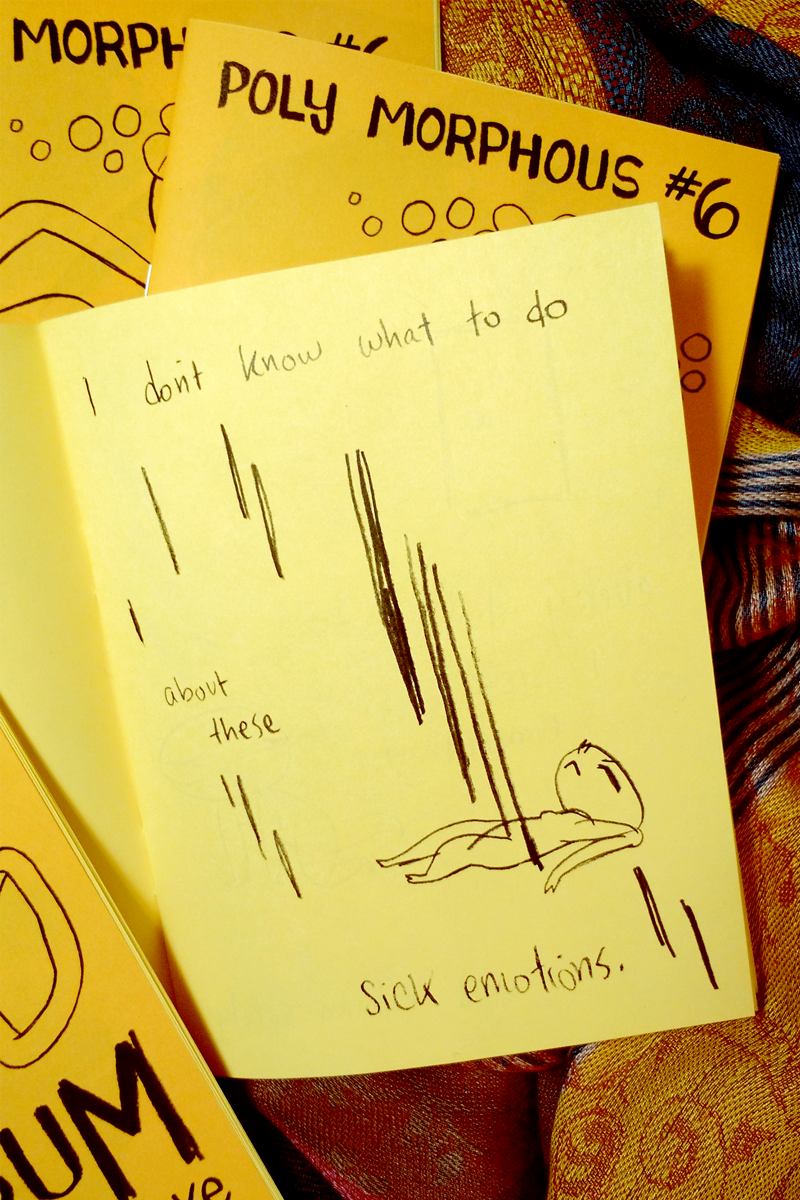 MORPH #6
POLY MORPHOUS #6
I don't know what to do
about
these
sick emotions.
UM
ve